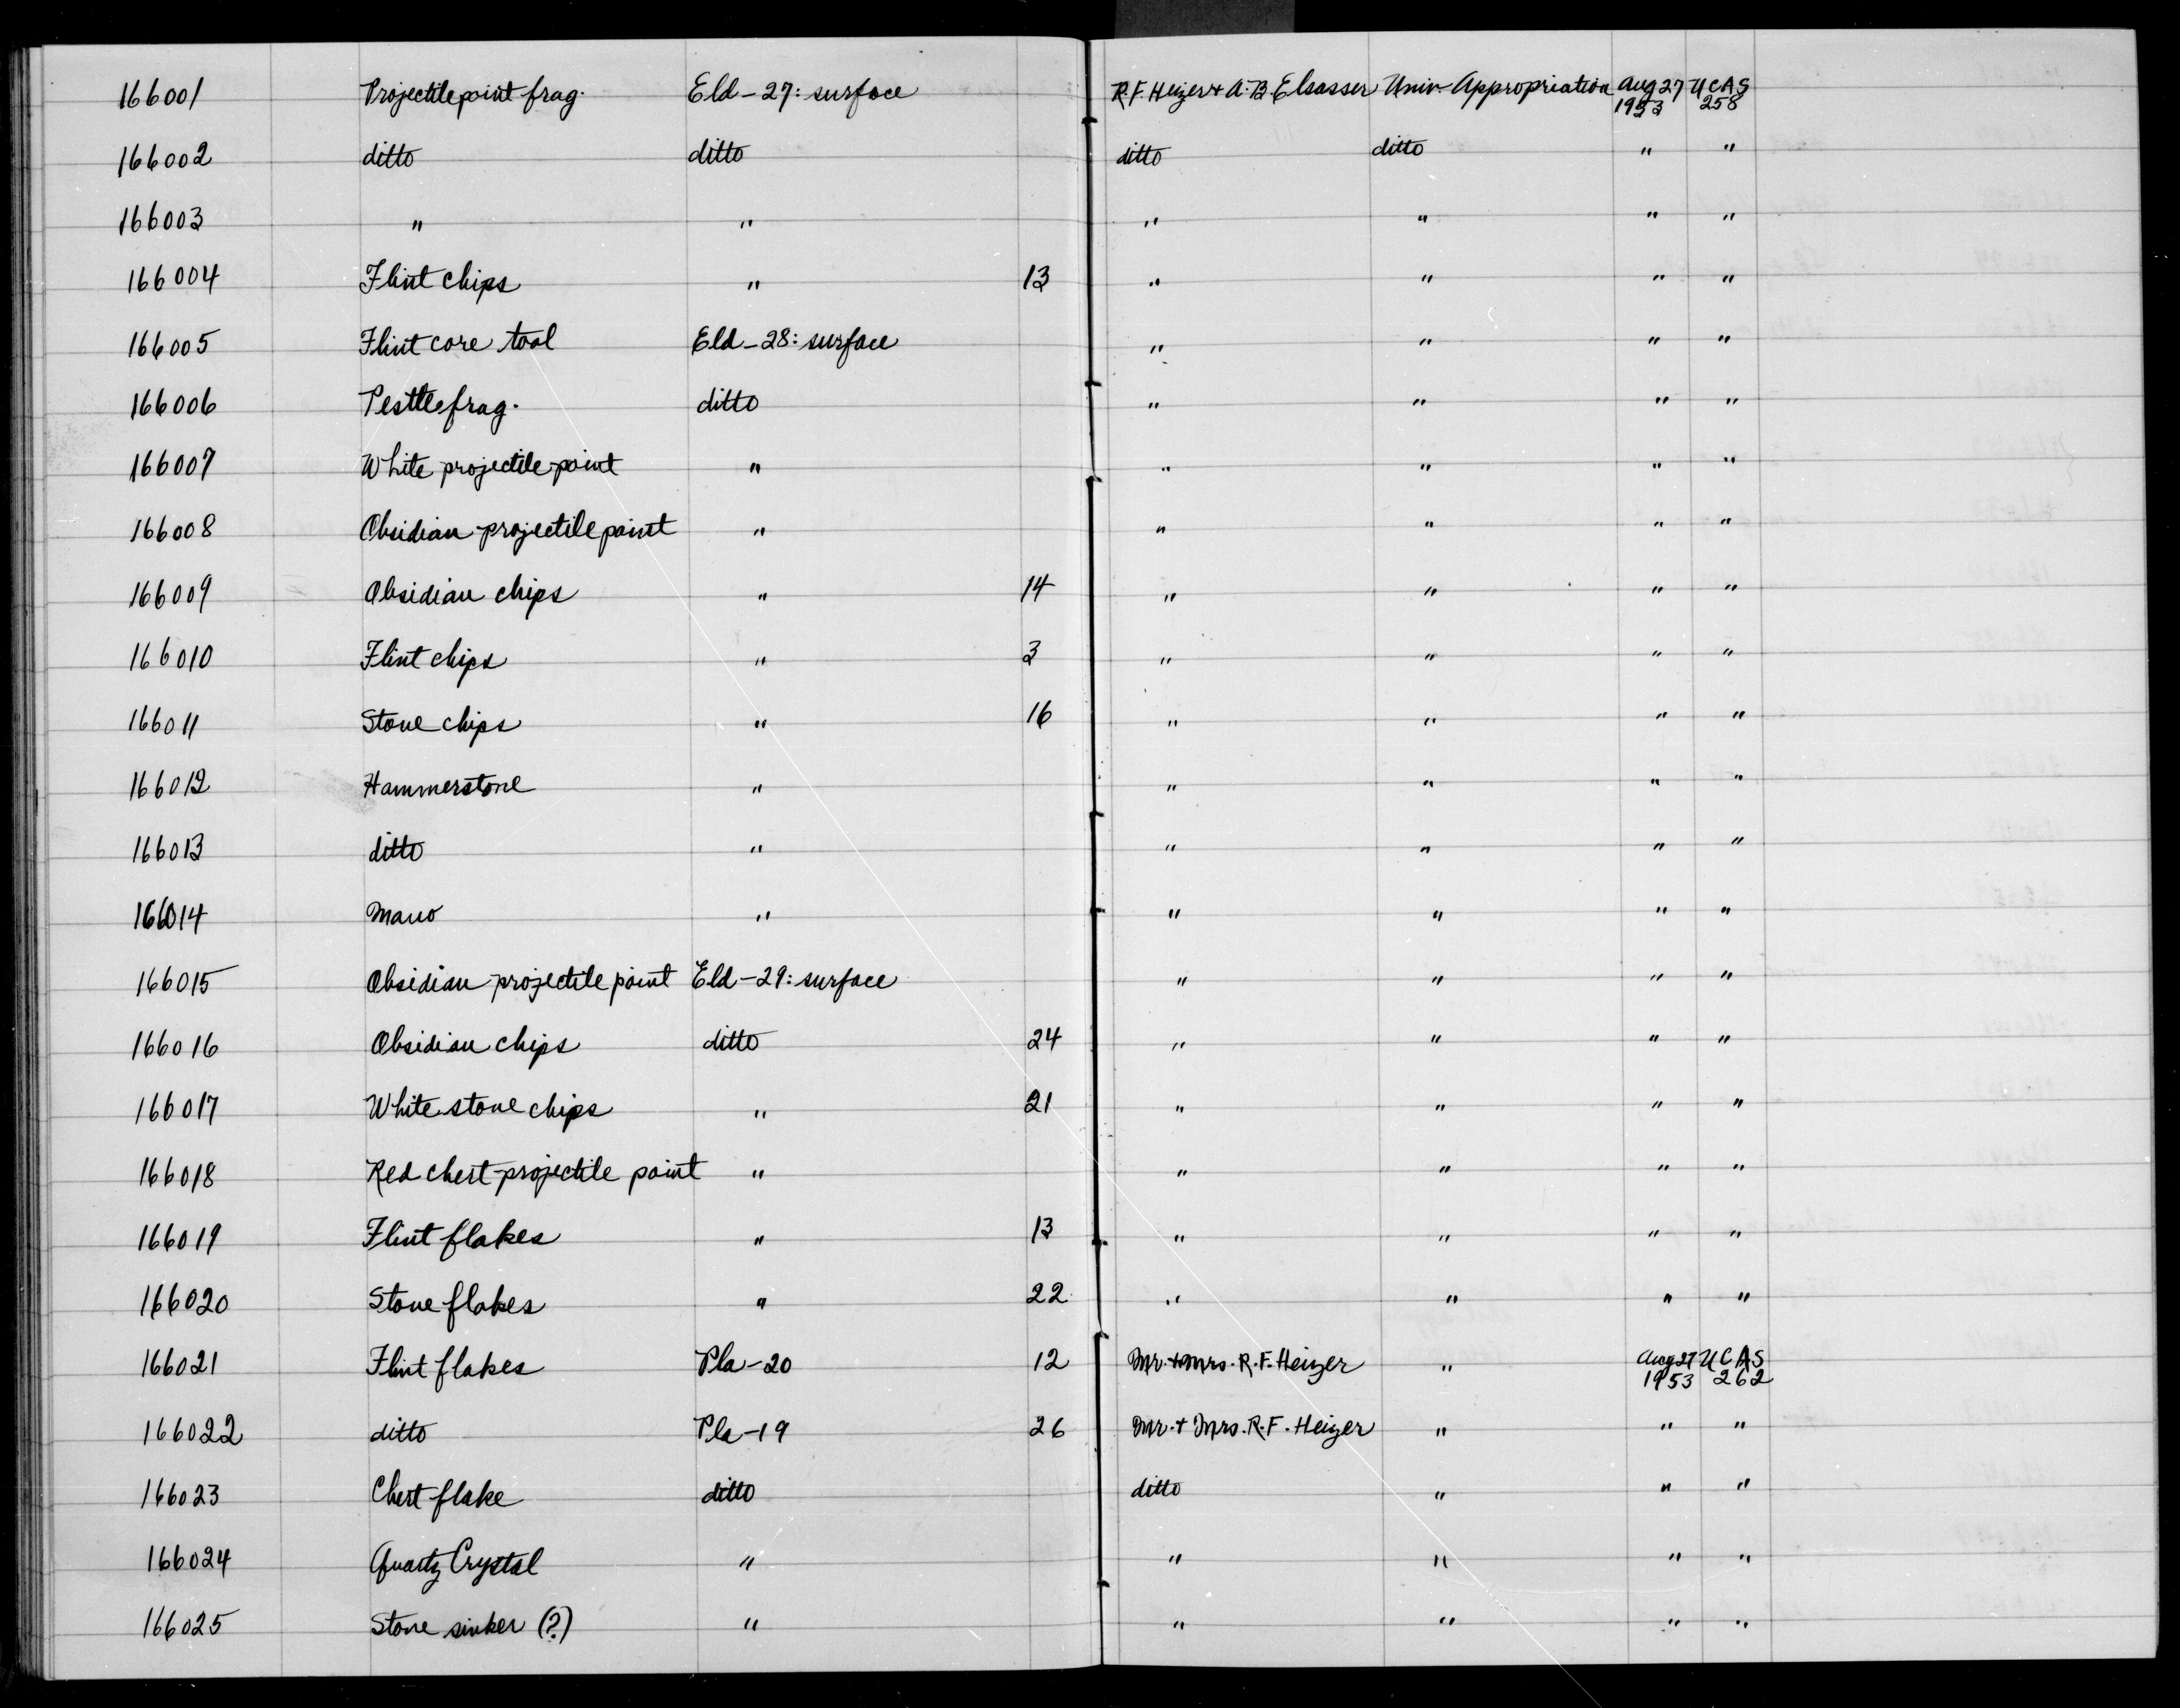 166001 Projectile point frag. Eld-27: surface R.F. Heizer + A.B. Elsasser Univ. Appropriation Aug 27 1953 UCAS 258
166002 ditto ditto ditto ditto " "
166003 " " " " " "
166004 Flint chips " 13 " " " "
166005 Flint core tool Eld-28: surface " " " "
166006 Pestle frag. ditto " " " "
166007 White projectile point " " " " "
166008 Obsidian projectile point " " " " "
166009 Obsidian chips " 14 " " " "
166010 Flint chips " 3 " " " "
166011 Stone chips " 16 " " " "
166012 Hammerstone " " " " "
166013 ditto " " " " "
166014 Mano " " " " "
166015 Obsidian projectile point Eld-29: surface " " " "
166016 Obsidian chips ditto 24 " " " "
166017 White stone chips " 21 " " " "
166018 Red chert projectile point " " " " "
166019 Flint flakes " 13 " " " "
166020 Stone flakes " 22 " " " "
166021 Flint flakes Pla-20 12 Mr. + Mrs. R.F. Heizer " Aug 27 1953 UCAS 262
166022 ditto Pla-19 26 Mr. + Mrs. R.F. Heizer " " "
166023 Chert flake ditto ditto " " "
166024 Quartz Crystal " " " " "
166025 Stone sinker (?) " " " " "